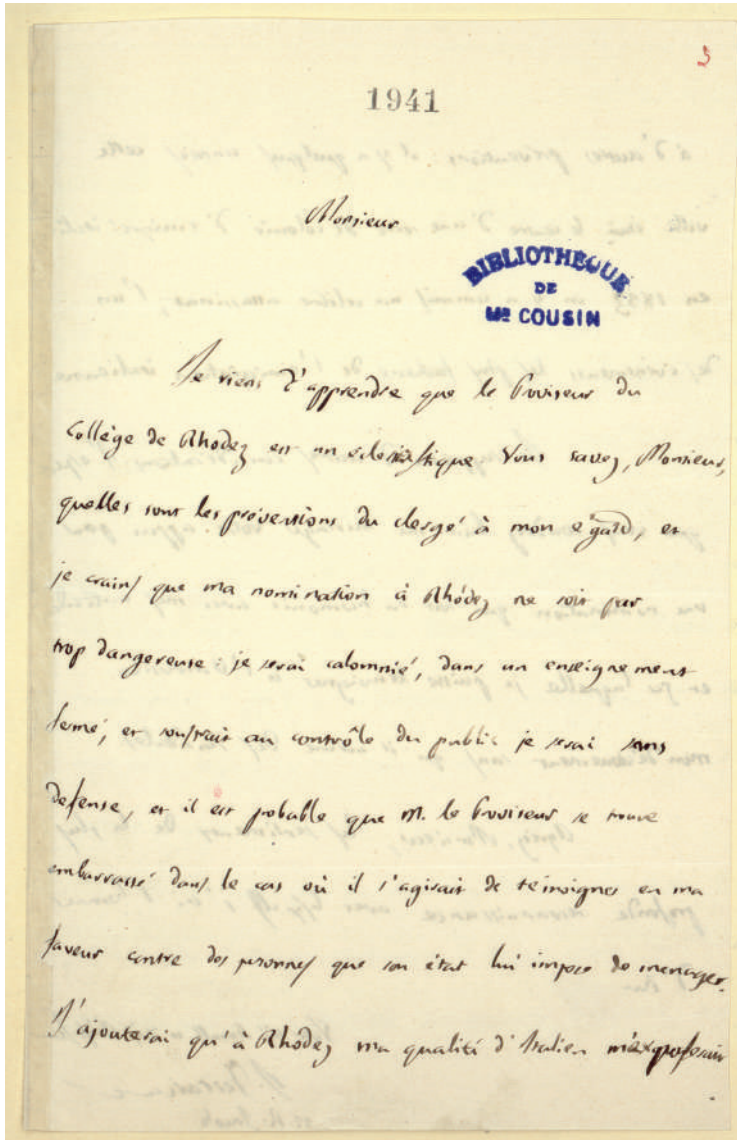 3
1941
Monsieur
BIBLIOTHÈQUE
DE
MR COUSIN
Je viens d'apprendre que le Proviseur du
Collège de Rhodez est un eclesiastique. Vous savez, Monsieur,
quelles sont les préventions du clergé à mon égard, et
je crains que ma nomination à Rhôdez ne soit par
trop dangereuse : je serai calomnié, dans un enseignement
fermé, et soustrait au contrôle du public je serai sans
défense, et il est probable que M. le Proviseur se trouve
embarrassé dans le cas où il s'agirait de témoigner en ma
faveur contre des personnes que son état lui impose de menager.
J'ajouterai qu'à Rhôdez ma qualité d'Italien m'exposerait